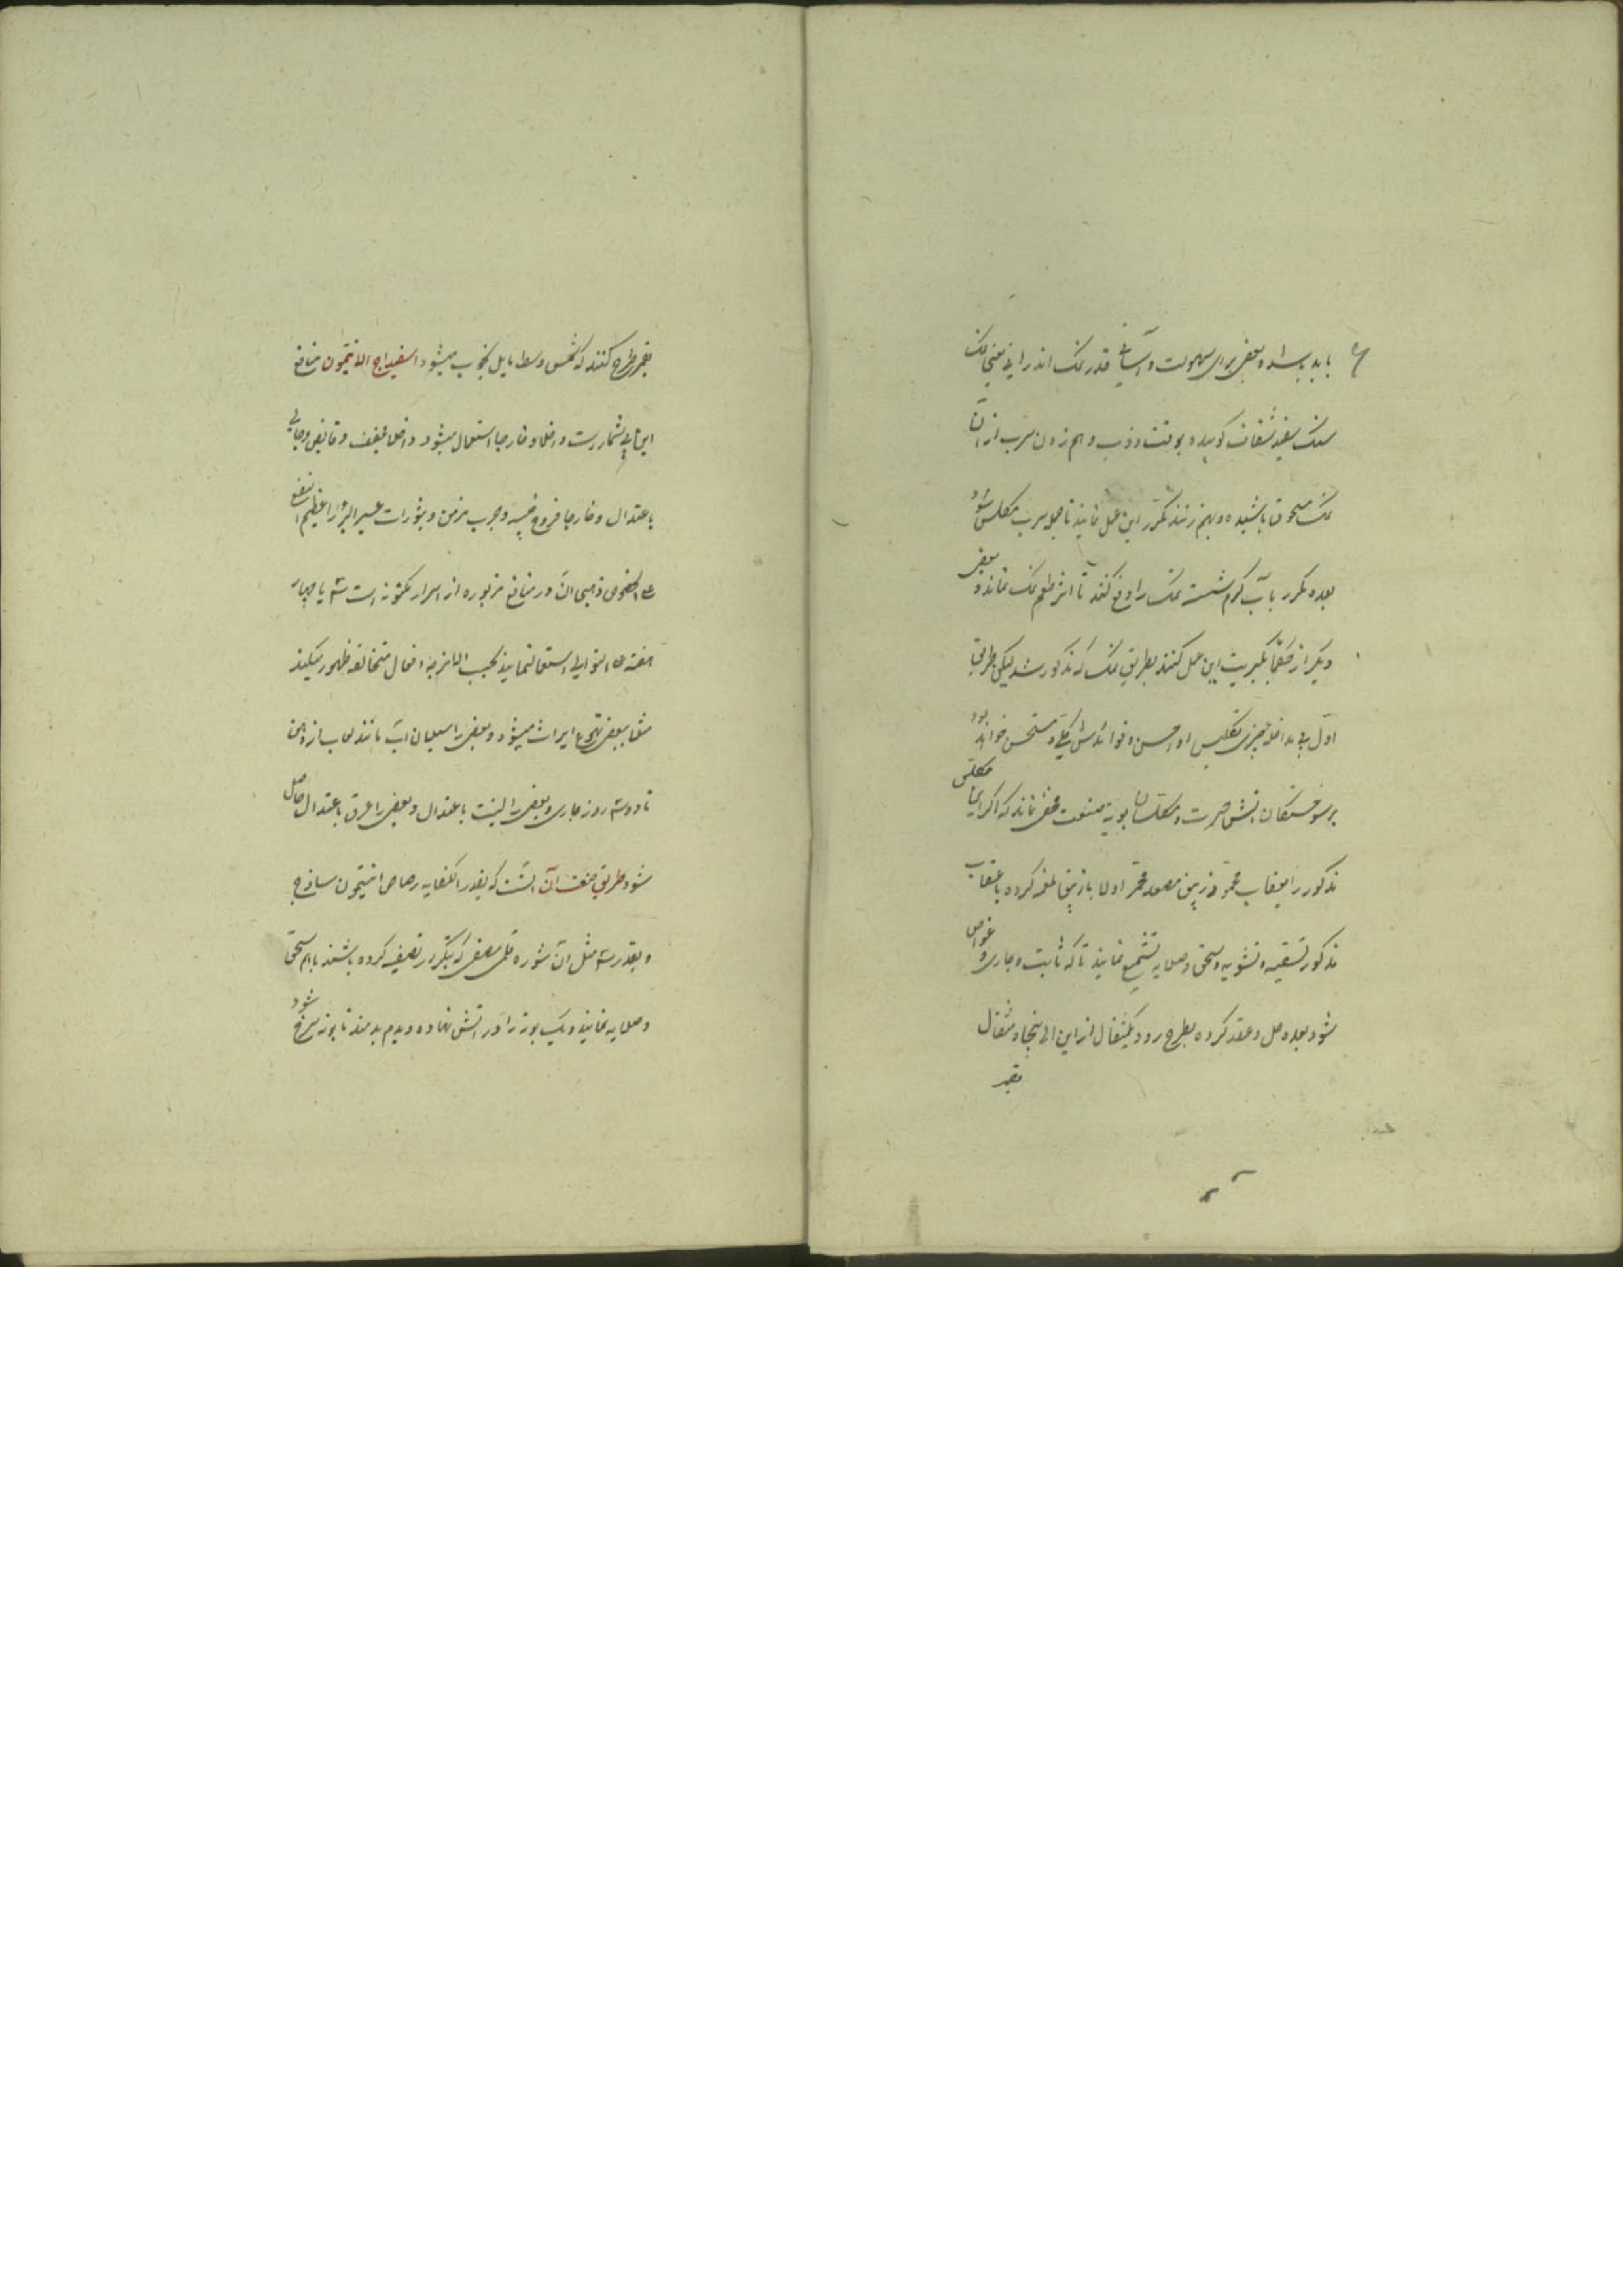 باید پاشد و بعضی برای سهولت و آسانی قدر نمک اندرانی یعنی نمک
سنک سفید شفاف کوبیده بوقت ذوب و هم زدن سرب از ان
نمک مسحوق پاشیده و بهم زنند مکرر این عمل نمایند تا جمله سرب مکلس شود
بعده مکرر بآب کرم شسته نمک را دفع کنند تا اثر طعم نمک نماند و بعضی
دیکر از حکما بکبریت این عمل کنند بطریق نمک که مذکور شد لیکن طریق
اول بی مداخله چیزی تکلیس او احسن و فوائدش کلی و مستحسن خواهد بود
بر سوختکان آتش حسرت و مکلسان بوته صنعت مخفی نماند که اکر این مکلس
مذکور را بعقاب محمر و زیبق مصعد محمر اولا با زیبق ملغمه کرده با عقاب
مذکور تسقیه و تشویه و سحق و صلایه و تشمیع نمایند تا که ثابت و جاری و غواص
شود بعده حل و عقد کرده بطرح رود یکمثقال از این الی پنجاه مثقال
بقمر
بقمر طرح کنند که شمس وسط مایل بخوب میشود اسفیداج الانتیمون منافع
این بی شمار است داخلا و خارجا استعمال میشود داخلا مجفف و قابض و جالی
باعتدال و خارجا قروح خبیثه و جرب مزمن و بثورات عسیر البرء را عظیم النفع
علی الخصوص ذهبی ان در منافع مزبوره از اسرار مکتونه است سه یا چهار
هفته علی التوالی استعمال نمایند بحسب الامزجه افعال متخالفه ظهور میکند
مثلا ببعض تهوع ایراث میشود و بعضی را سیلان آب مانند لعاب از دهن
تا دو سه روز جاری و بعضی را لینت باعتدال و بعضی را عرق باعتدال حاصل
شود طریق صنعت آن انست که بقدر الکفایه رصاص انتیمون ساذج
و بقدر سه مثل ان شوره قلمی مصفی که بتکرار تصفیه کرده باشند باهم سحق
و صلایه نمایند و یک بوته را در اتش نهاده و بدم بدمند تا بوته سرخ شود